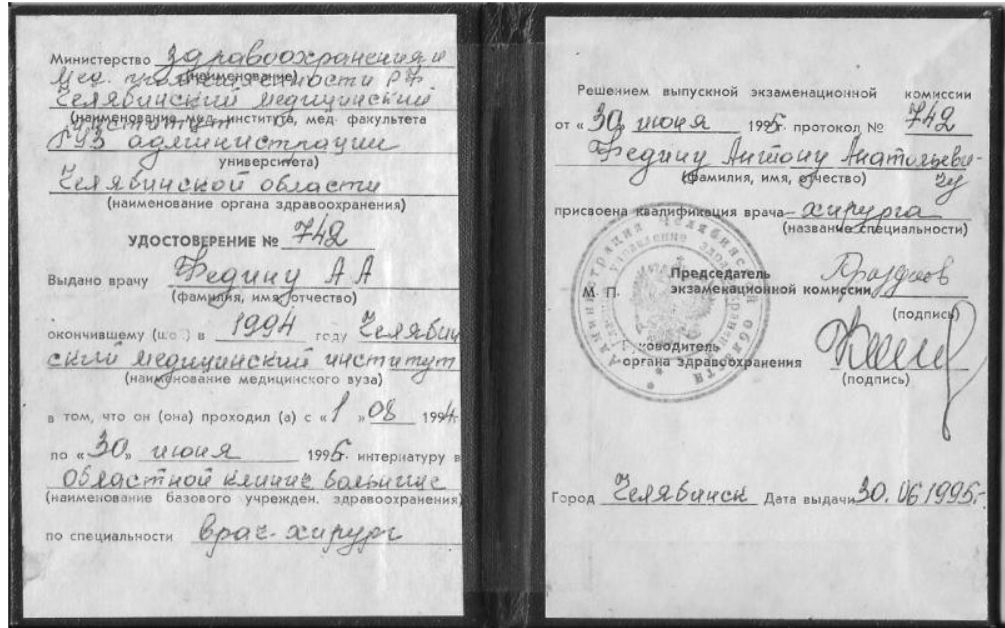 Министерство Здравоохранения и
мед. промышленности РФ
(наименование)
Челябинский медицинский
институт
(наименование мед. института, мед. факультета
ГУЗ администрации
университета)
Челябинской области
(наименование органа здравоохранения)
УДОСТОВЕРЕНИЕ № 742
Выдано врачу Федину А А
(фамилия, имя, отчество)
окончившему (шей) в 1994 году Челябин
ский медицинский институт
(наименование медицинского вуза)
в том, что он (она) проходил (а) с «1» 08 1994г.
по «30» июня 1995г. интернатуру в
Областной клинич больнице
(наименование базового учрежден. здравоохранения)
по специальности врач-хирург
Решением выпускной экзаменационной комиссии
от «30» июня 1995г. протокол № 742
Федину Антону Анатольеви-
чу
(фамилия, имя, отчество)
присвоена квалификация врача- хирурга
(название специальности)
Председатель
М. П. экзаменационной комиссии
(подпись)
Руководитель
органа здравоохранения
(подпись)
Администрация Челябинской области
Город Челябинск Дата выдачи 30.06.1995г.